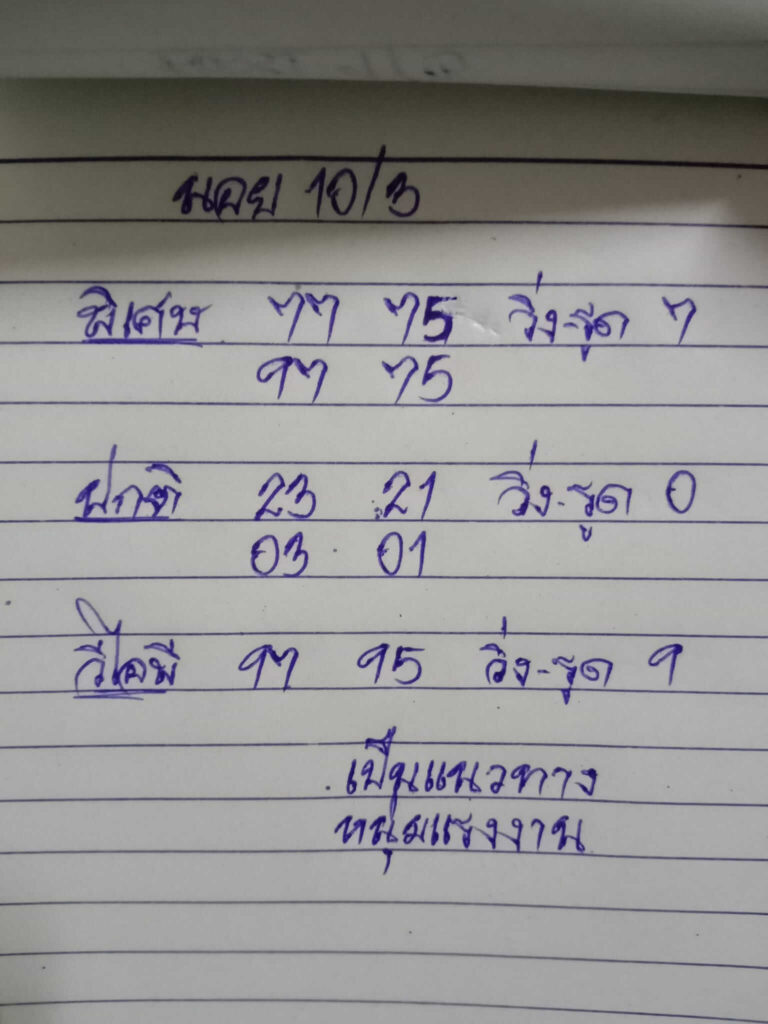 นอย 10/3
พิเศษ 77 75 วิ่ง-รูด 7
97 75
ปกติ 23 21 วิ่ง-รูด 0
03 01
วีไอพี 97 95 วิ่ง-รูด 9
เป็นแนวทาง
หนุ่มแรงงาน